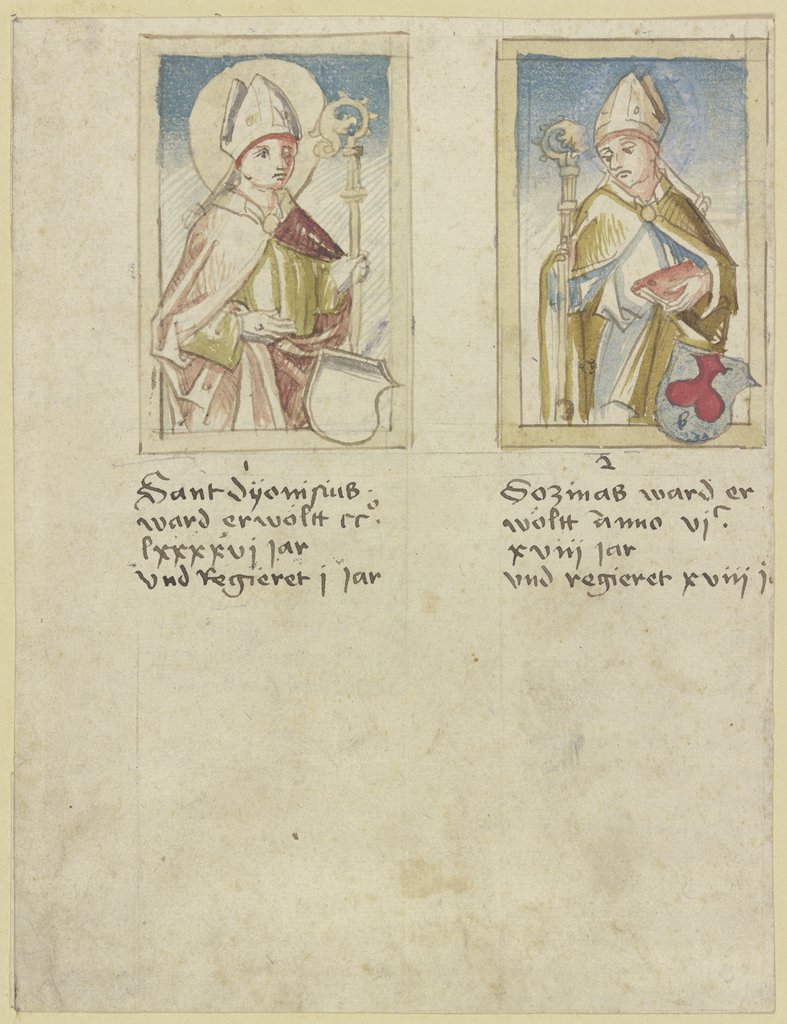 1
Sant dÿonisius
ward erwöltt ccº.
lxxxxvj Jar
vnd Regieret j Jar
2
Sozimas ward er
wöltt anno vjᶜ.
xviij Jar
vnd regieret xviij j
b